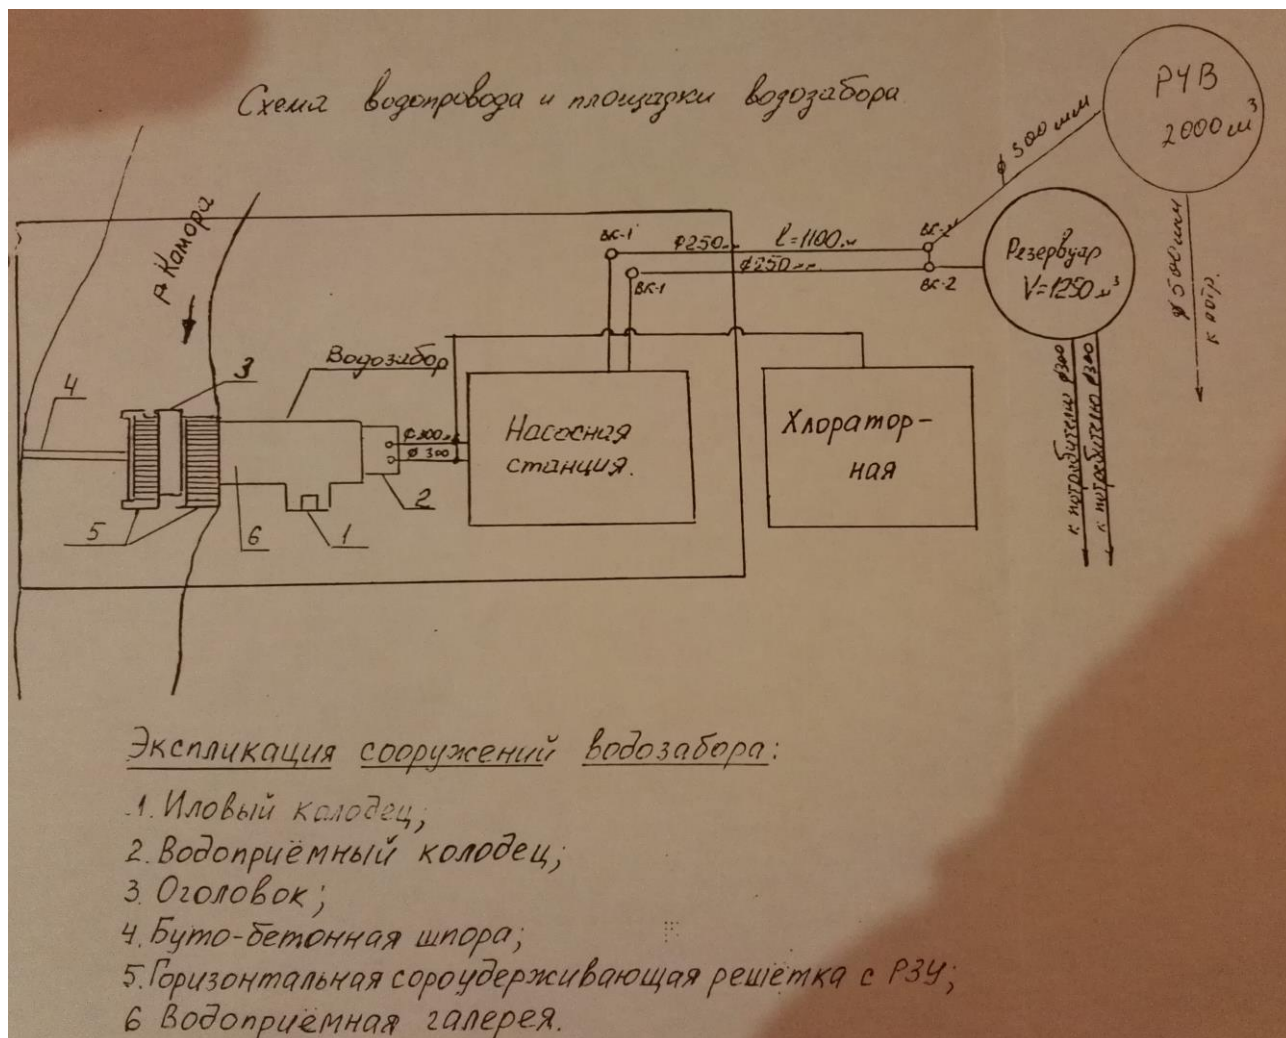 Схема водопровода и площадки водозабора
РЧВ
2000 м³
ø 300 мм
ø 500 мм
к потр.
р. Камора
ВК-1'
ø250мм
l=1100м
ВК-2'
ВК-1
ø250мм
ВК-2
Резервуар
V=1250 м³
к потребителю ø300
к потребителю ø300
Водозабор
3
4
5
6
1
2
ø300мм
ø 300
Насосная
станция.
Хлоратор-
ная
Экспликация сооружений водозабора:
1. Иловый колодец;
2. Водоприёмный колодец;
3. Оголовок;
4. Буто-бетонная шпора;
5. Горизонтальная сороудерживающая решётка с РЗУ;
6 Водоприёмная галерея.